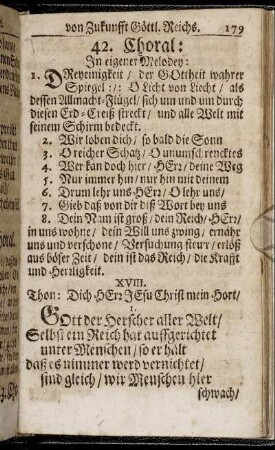 von Zukunfft Göttl. Reichs. 179
42. Choral:
In eigener Melodey:
1. DReyeinigkeit / der GOttheit wahrer
Spiegel :/: O Licht von Liecht / als
dessen Allmacht-Flügel / sich um und um durch
diesen Erd-Creiß streckt / und alle Welt mit
seinem Schirm bedeckt.
2. Wir loben dich / so bald die Sonn
3. O reicher Schatz / O unumschrencktes
4. Wer kan doch hier / HErr / deine Weg
5. Nur immer hin / nur hin mit deinem
6. Drum lehr uns HErr / O lehr uns /
7. Gieb daß von dir diß Wort bey uns
8. Dein Nam ist groß / dein Reich / HErr /
in uns wohne / dein Will uns zwing / ernähr
uns und verschone / Versuchung steur / erlöß
aus böser Zeit / dein ist das Reich / die Krafft
und Herzligkeit.
XVIII.
Thon: Dich HErr JEsu Christ mein Hort /
1.
GOtt der Herscher aller Welt /
Selbst ein Reich hat auffgerichtet
unter Menschen / so er hält
daß es nimmer werd vernichtet /
sind gleich / wir Menschen hier
schwach /